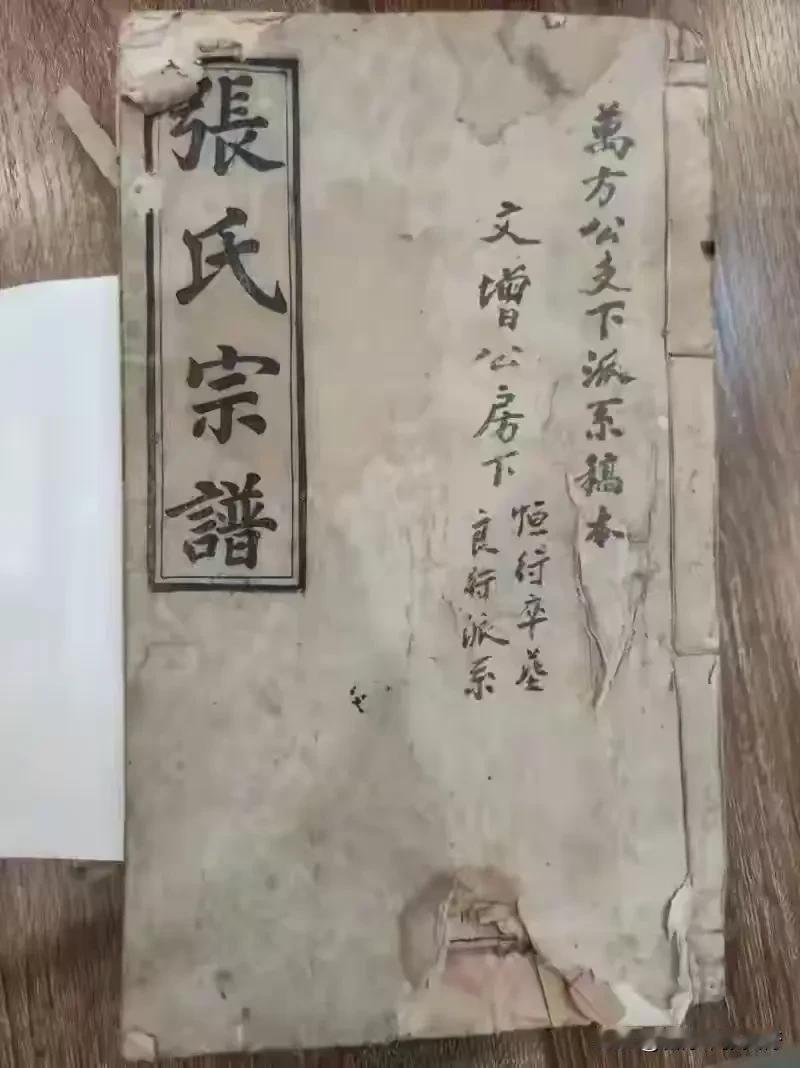 萬方公支下派系稿本
文增公房下
恒行卒墓
良行派系
張氏宗譜